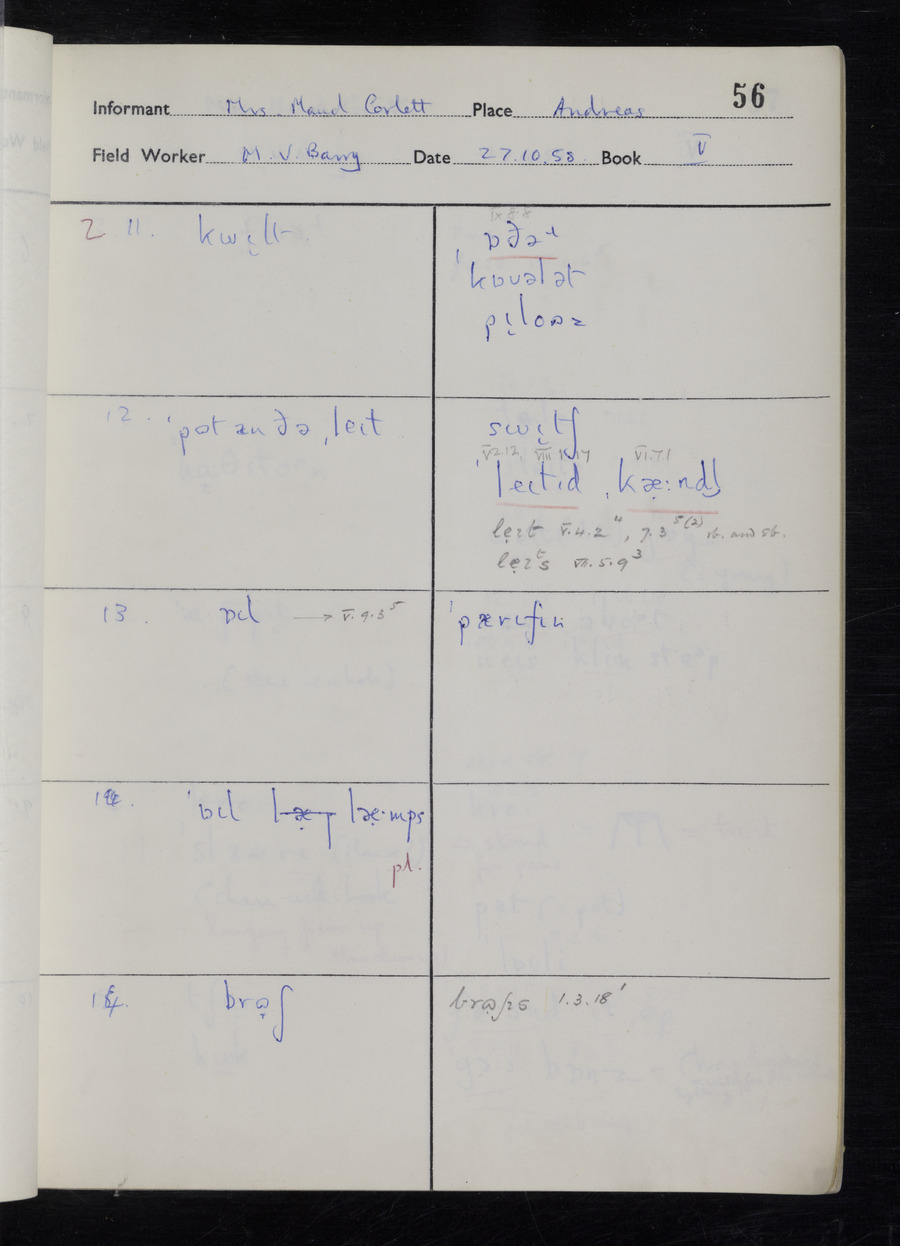 56
Informant Mrs. Maud Corlett Place Andreas
Field Worker M. V. Barry Date 27.10.58 Book V
2 11. kwɪ̞lt
IX 8.8
ɒðəɫ
ˈkʊvələt
pɪ̞loəz
12. ˈpʊt ən ðə ˌleɪt
swɪ̞tʃ
V.2.12, VIII 1.17 VI.7.1
ˈleɪtɪd ˌkæ:ndl̩
le̞ɪt V.4.2⁴, 7.3⁵⁽²⁾ ib. and 5b.
le̞ɪts VII.5.9³
13. ɒɪl → V.9.3⁵
ˈpærɪfɪn
14. ˈɒɪl læ̞ læ̞·mps
pl.
14. brɑ̞ʃ
brɑ̞ʃɪz 1.3.18¹